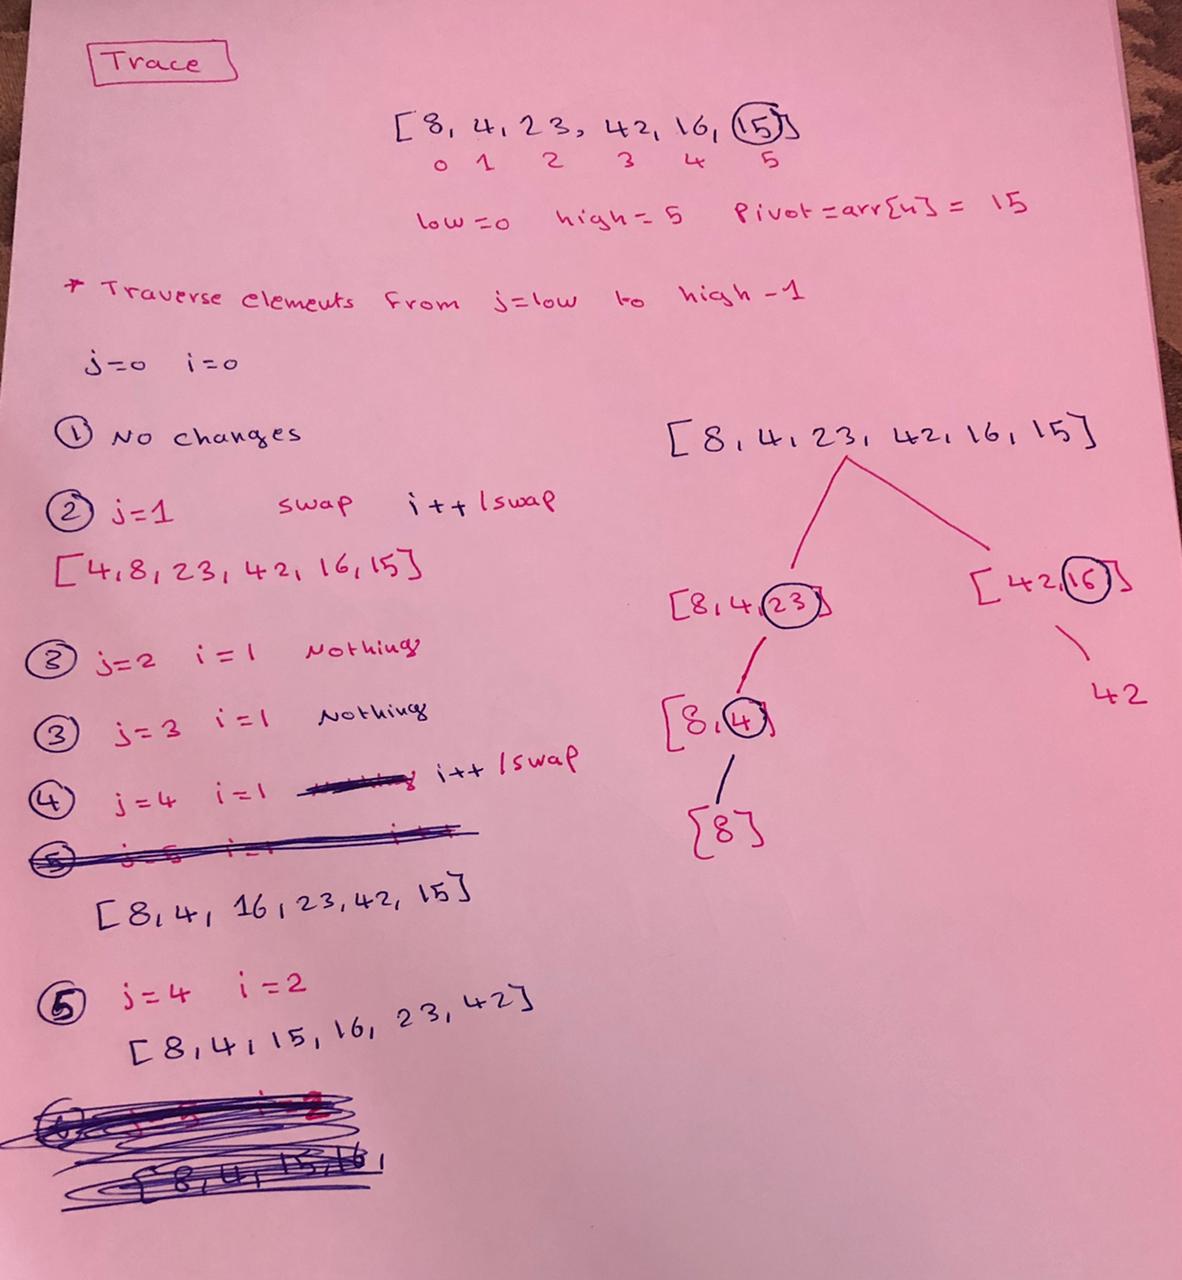 Trace
[8, 4, 23, 42, 16, 15]
0 1 2 3 4 5
low=0 high=5 Pivot=arr[h]= 15
* Traverse elements from j=low to high-1
j=0 i=0
① No changes
② j=1 swap i++ / swap
[4,8,23,42,16,15]
③ j=2 i=1 Nothing
③ j=3 i=1 Nothing
④ j=4 i=1 i++ / swap
[8,4, 16,23,42, 15]
⑤ j=4 i=2
[8,4,15,16, 23,42]
[8,4,15,16,
[8,4,23,42,16,15]
[8,4,23]
[42,16]
[8,4]
42
[8]